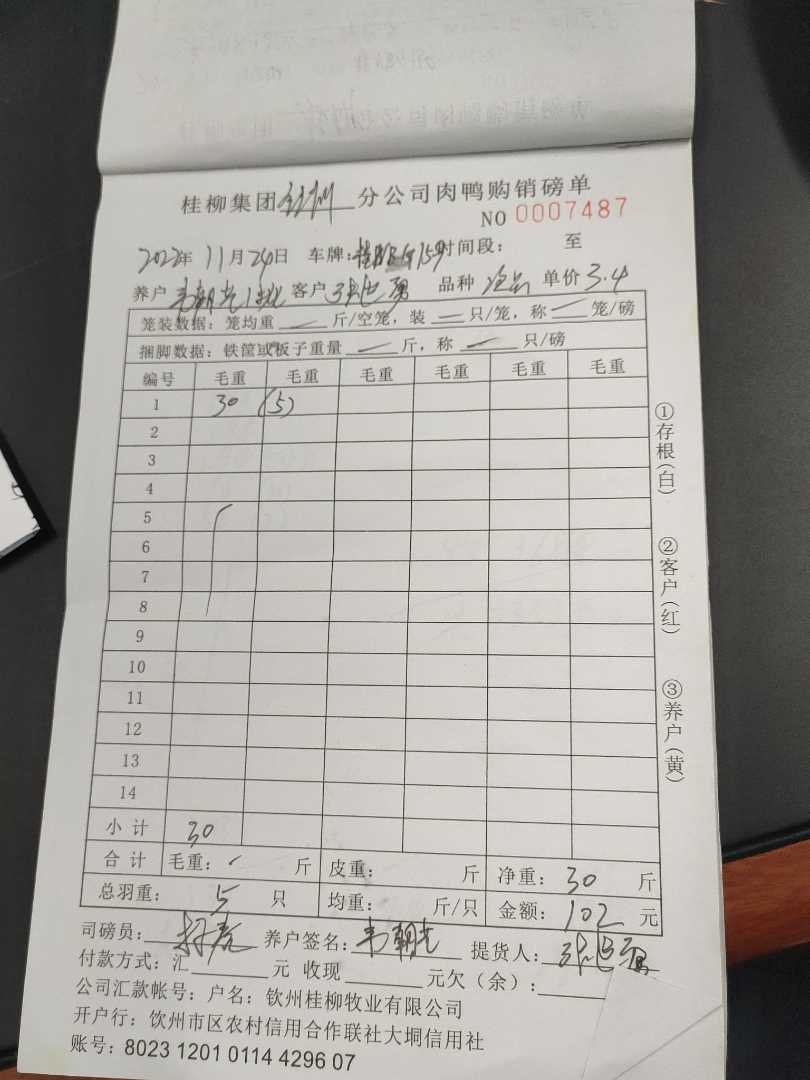 桂柳集团钦州分公司肉鸭购销磅单
NO 0007487
2022年11月24日 车牌: 时间段: 至
养户 韦朝光 客户 张 品种 单价 3.4
笼装数据: 笼均重 — 斤/空笼, 装 — 只/笼, 称 — 笼/磅
捆脚数据: 铁筐或板子重量 — 斤, 称 — 只/磅
编号 毛重 毛重 毛重 毛重 毛重 毛重
1 30 (5)
2
3
4
5
6
7
8
9
10
11
12
13
14
小计 30
合计 毛重: 斤 皮重: 斤 净重: 30 斤
总羽重: 5 只 均重: 斤/只 金额: 102 元
司磅员: 养户签名: 韦朝光 提货人: 张
付款方式: 汇 元 收现 元欠(余):
公司汇款帐号: 户名: 钦州桂柳牧业有限公司
开户行: 钦州市区农村信用合作联社大垌信用社
账号: 8023 1201 0114 4296 07
①存根(白)
②客户(红)
③养户(黄)